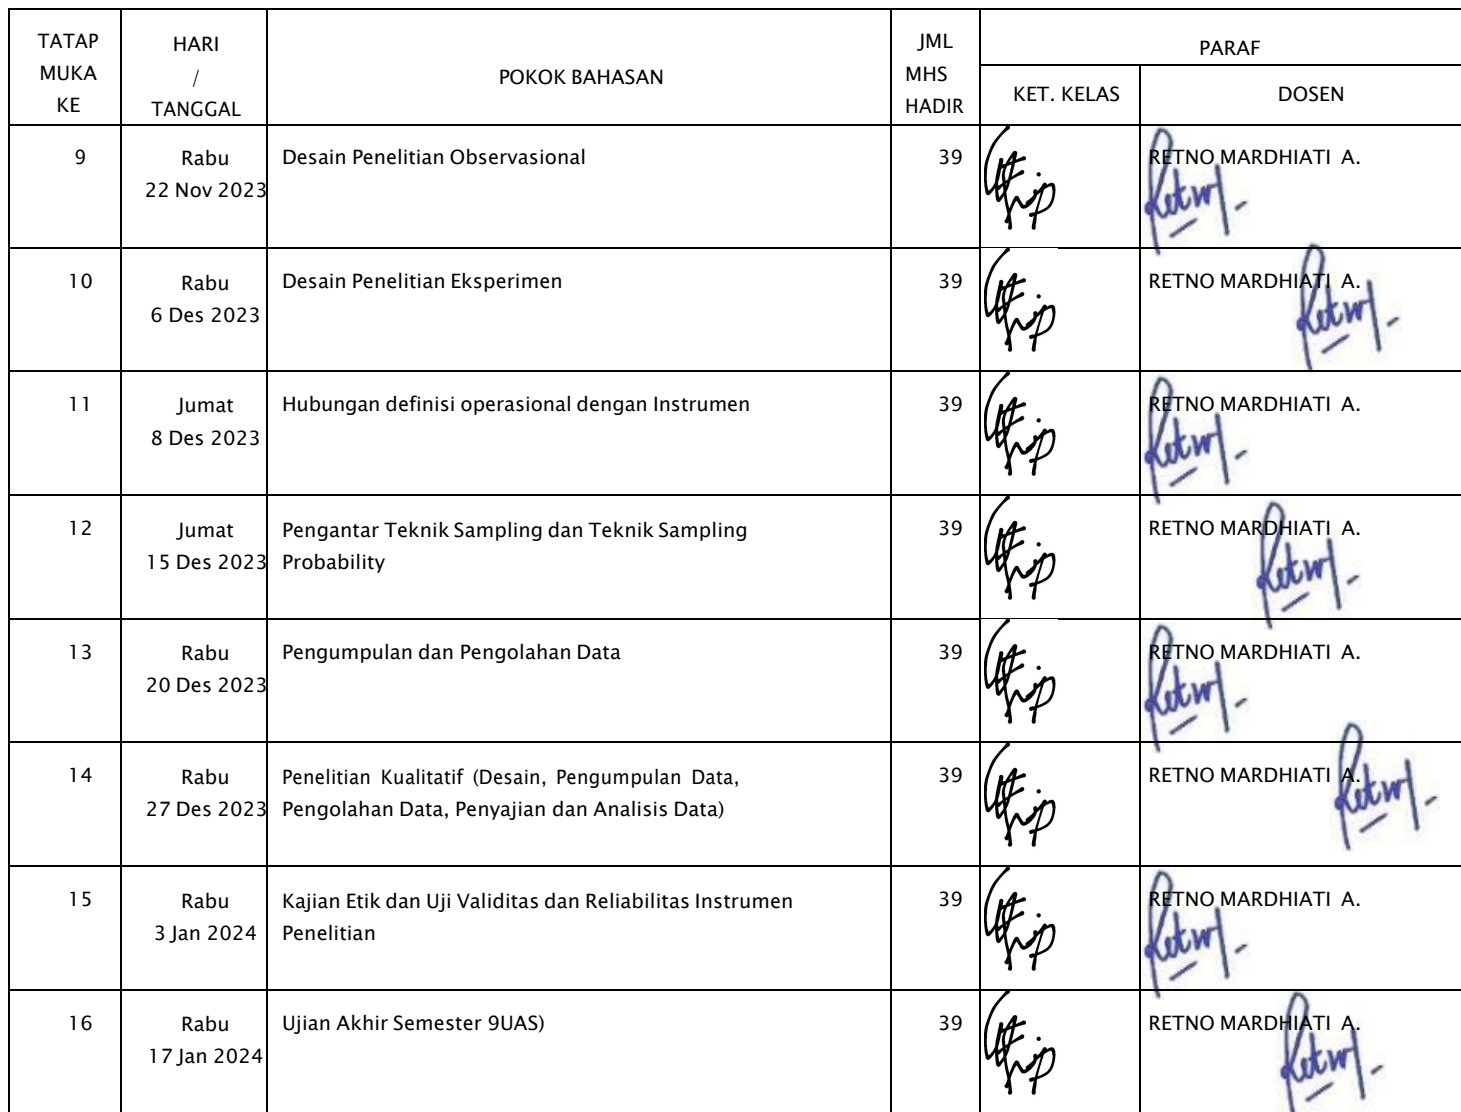 TATAP MUKA KE
HARI / TANGGAL
POKOK BAHASAN
JML MHS HADIR
PARAF
KET. KELAS
DOSEN
9
Rabu
22 Nov 2023
Desain Penelitian Observasional
39
RETNO MARDHIATI A.
10
Rabu
6 Des 2023
Desain Penelitian Eksperimen
39
RETNO MARDHIATI A.
11
Jumat
8 Des 2023
Hubungan definisi operasional dengan Instrumen
39
RETNO MARDHIATI A.
12
Jumat
15 Des 2023
Pengantar Teknik Sampling dan Teknik Sampling
Probability
39
RETNO MARDHIATI A.
13
Rabu
20 Des 2023
Pengumpulan dan Pengolahan Data
39
RETNO MARDHIATI A.
14
Rabu
27 Des 2023
Penelitian Kualitatif (Desain, Pengumpulan Data,
Pengolahan Data, Penyajian dan Analisis Data)
39
RETNO MARDHIATI A.
15
Rabu
3 Jan 2024
Kajian Etik dan Uji Validitas dan Reliabilitas Instrumen
Penelitian
39
RETNO MARDHIATI A.
16
Rabu
17 Jan 2024
Ujian Akhir Semester 9UAS)
39
RETNO MARDHIATI A.